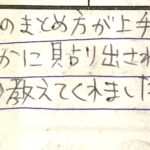 のまとめ方が上手
かに貼り出され
教えてくれました